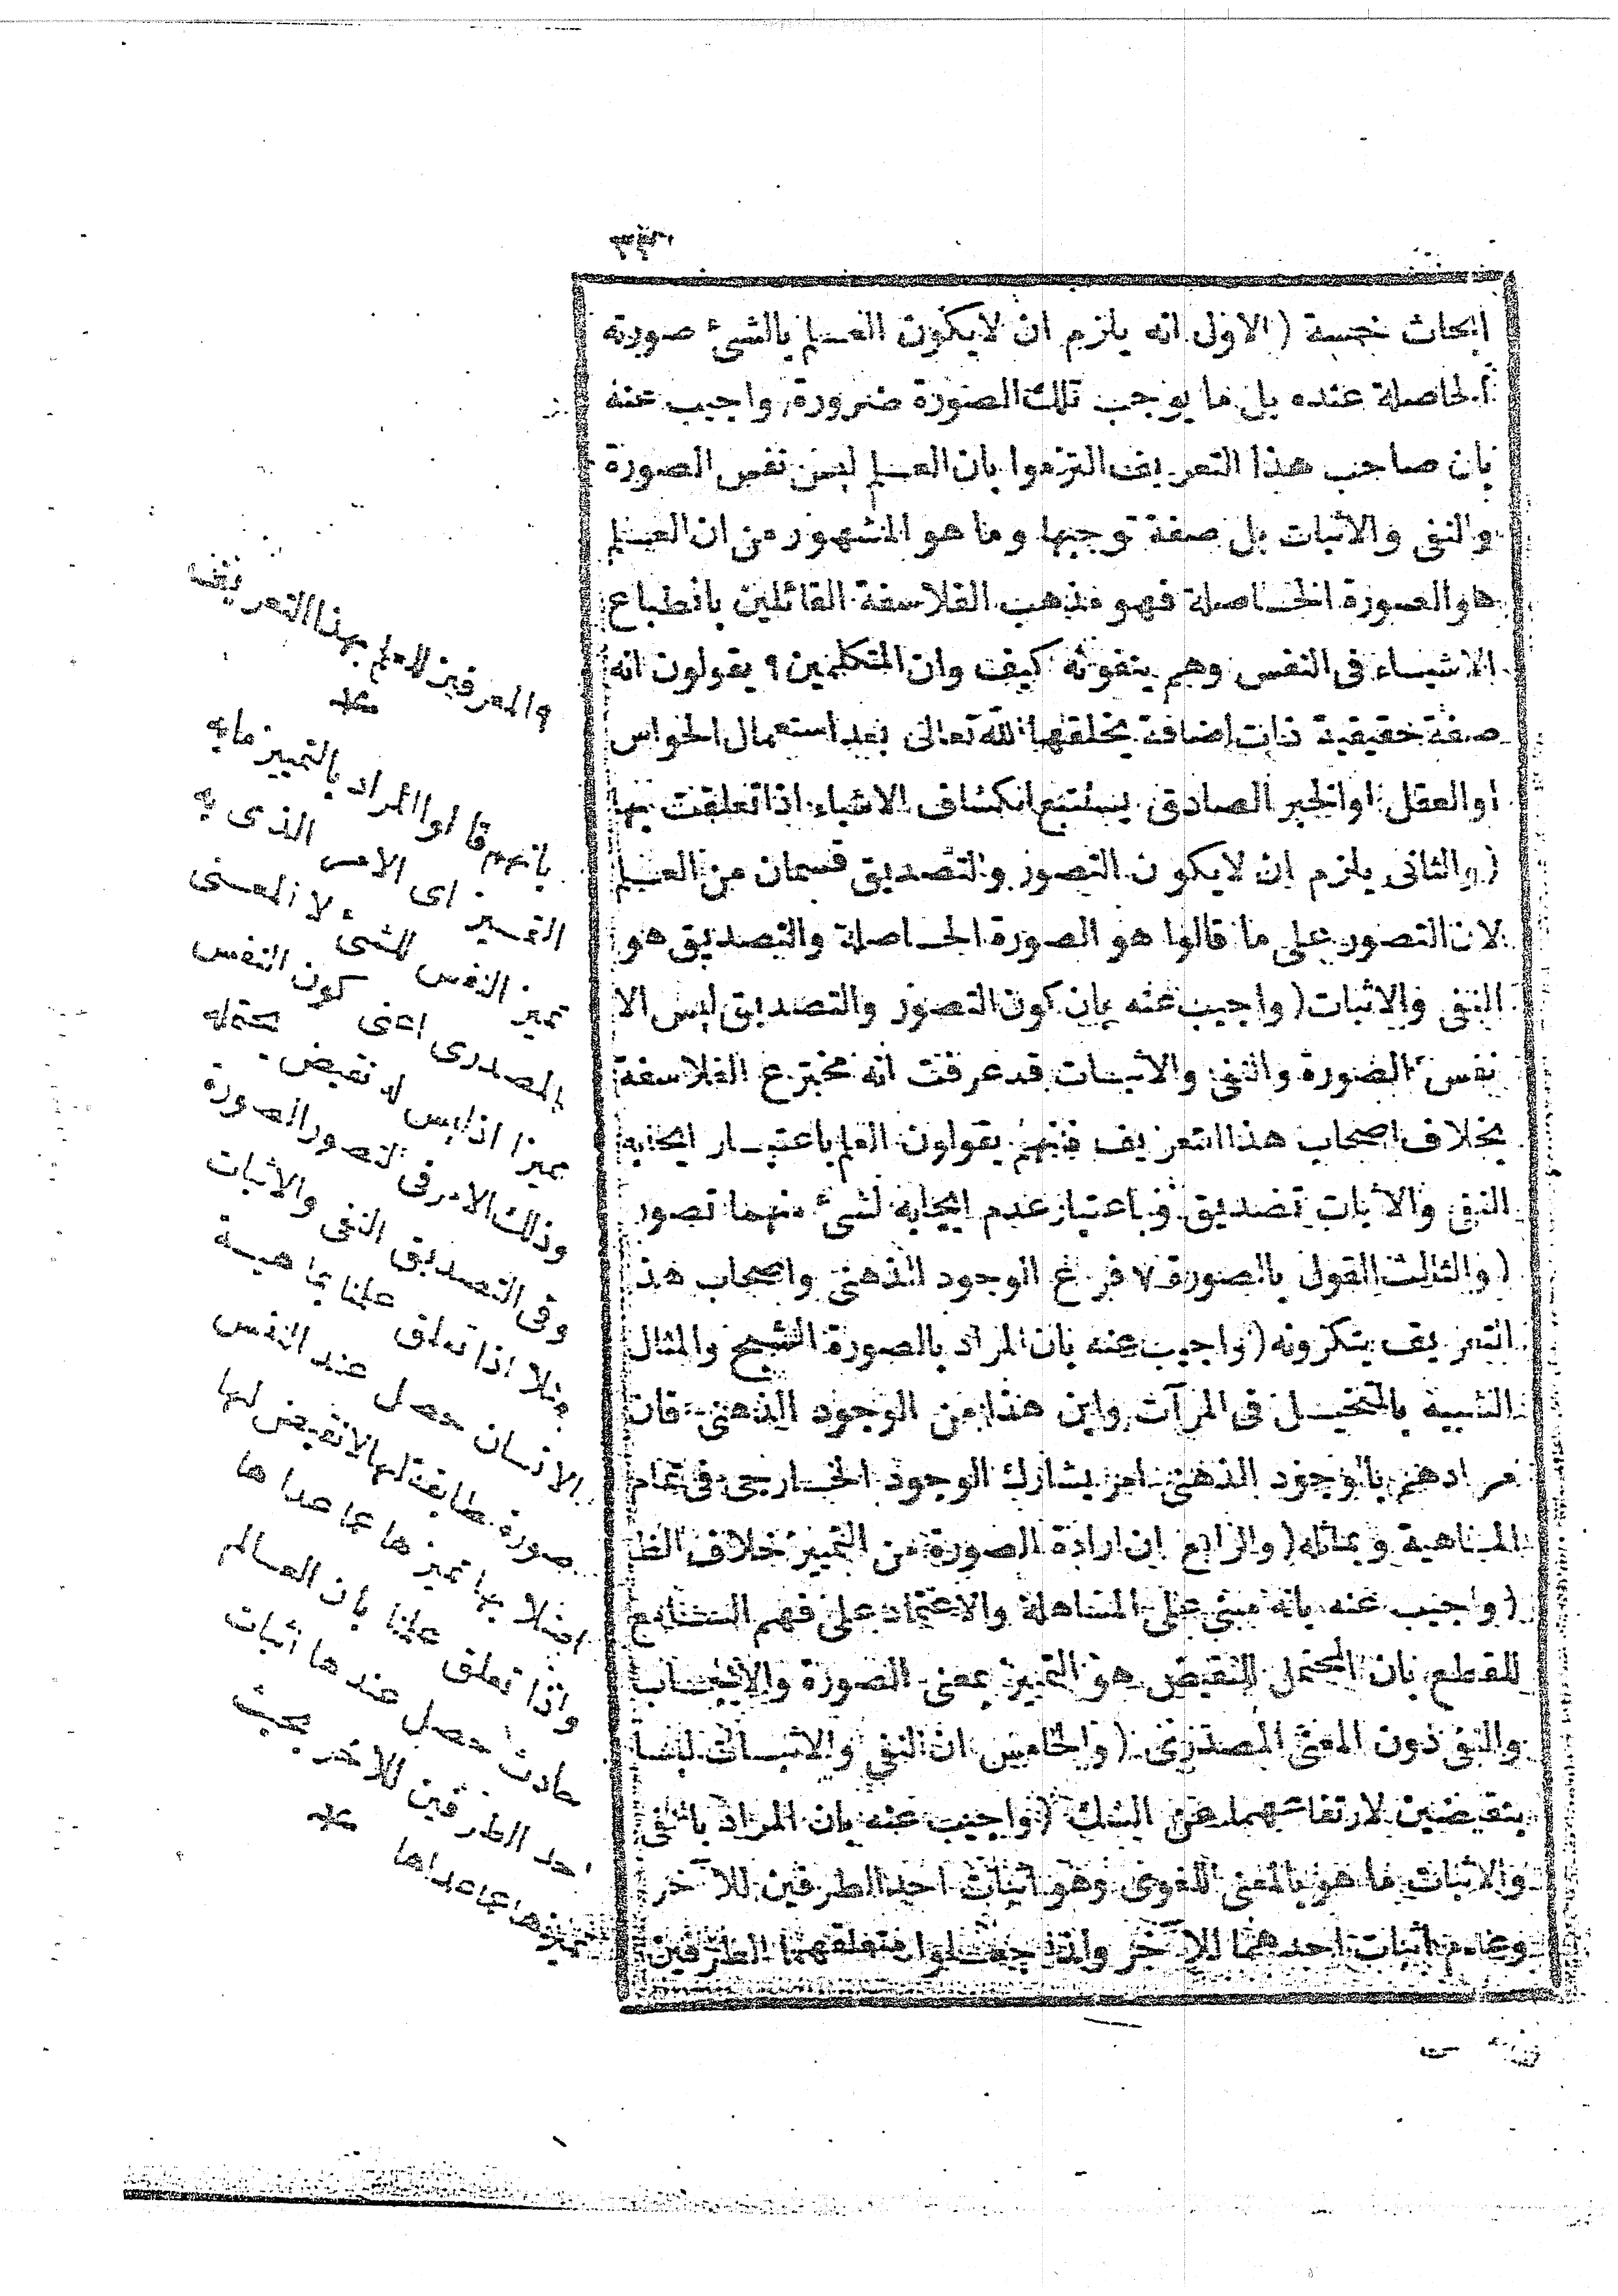 ابحاث خمسة (الاول انه يلزم ان لايكون العلم بالشئ صورته
الحاصلة عنده بل ما يوجب تلك الصورة ضرورة واجيب عنه
بان صاحب هذا التعريف التزموا بان العلم ليس نفس الصورة
والنفى والاثبات بل صفة توجبها وما هو المشهور من ان العلم
هو الصورة الحاصلة فهو مذهب الفلاسفة القائلين بانطباع
الاشياء فى النفس وهم ينفونه كيف وان المتكلمين ٩ يقولون انه
صفة حقيقية ذات اضافة يخلقها الله تعالى بعد استعمال الحواس
او العقل او الخبر الصادق يستتبع انكشاف الاشياء اذا تعلقت بها
(والثانى يلزم ان لايكون التصور والتصديق قسمان من العلم
لان التصور على ما قالوا هو الصورة الحاصلة والتصديق هو
النفى والاثبات (واجيب عنه بان كون التصور والتصديق ليس الا
نفس الصورة والنفى والاثبات قد عرفت انه مخترع الفلاسفة
بخلاف اصحاب هذا التعريف فانهم يقولون العلم باعتبار ايجابه
النفى والاثبات تصديق وباعتبار عدم ايجابه لشئ منهما تصور
(والثالث القول بالصورة لا فرع الوجود الذهنى واصحاب هذ
التعريف ينكرونه (واجيب عنه بان المراد بالصورة الشبح والمثال
الشبيه بالمتخيل فى المرآت واين هذا من الوجود الذهنى فان
مرادهم بالوجود الذهنى امر يشارك الوجود الخارجى فى تمام
الماهية ويماثله (والرابع ان ارادة الصورة من التمييز خلاف الظ
(واجيب عنه بانه مبنى على المساهلة والاعتماد على فهم السامع
للقطع بان المحتمل للنقيض هو التمييز بمعنى الصورة والاثبات
والنفى دون المعنى المصدرى (والخامس ان النفى والاثبات ليسا
بنقيضين لارتفاعهما عن الشك (واجيب عنه بان المراد بالنفى
والاثبات ما هو بالمعنى اللغوى وهو اثبات احد الطرفين للآخر
وعدم اثبات احدهما للآخر ولذا جعلوا متعلقهما الطرفين
والمعرفين للعلم بهذا التعريف
بانهم قالوا المراد بالتمييز ما به
التمييز اى الامر الذى به
تميز النفس الشئ لا المعنى
المصدرى اعنى كون النفس
مميزا اذ ليس له نقيض
وذلك الامر فى التصور الصورة
وفى التصديق النفى والاثبات
مثلا اذا تعلق علمنا بماهية
الانسان حصل عند النفس
صورة مطابقة لها لا نقيض لها
بها تميزها عما عداها
واذا تعلق علمنا بان العالم
حادث حصل عندها اثبات
احد الطرفين للآخر بحيث
تميزها عما عداها